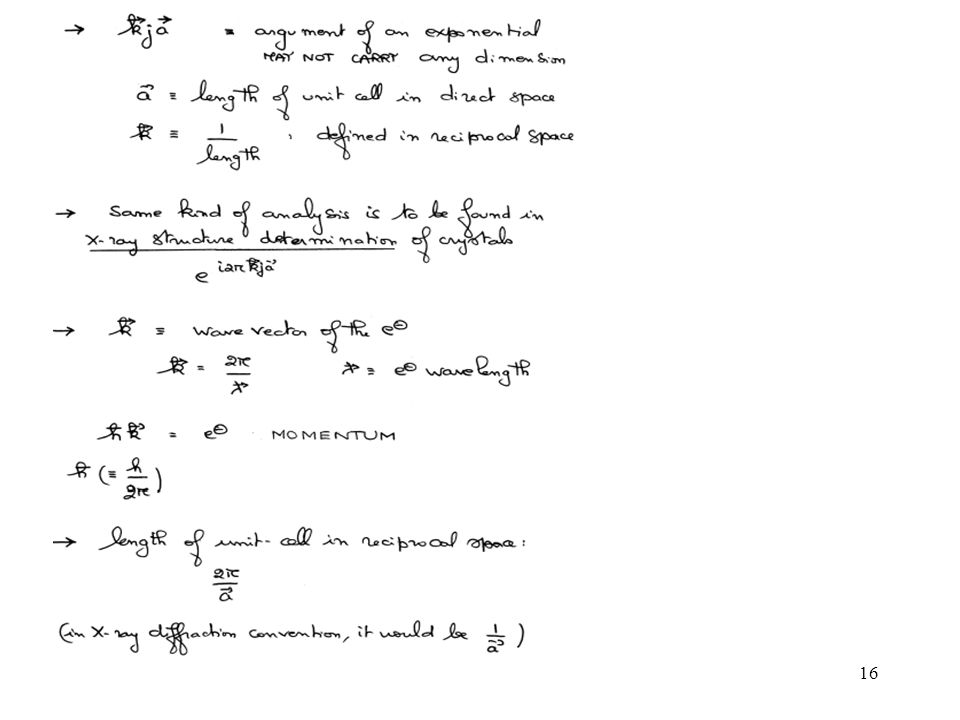 → k⃗ja⃗ ≡ argument of an exponential
MAY NOT CARRY any dimension
a⃗ ≡ length of unit cell in direct space
k⃗ ≡ 1/length , defined in reciprocal space
→ Same kind of analysis is to be found in
X-ray structure determination of crystals
e^{i2πk⃗ja⃗}
→ k⃗ ≡ wave vector of the e⊖
k⃗ = 2π/λ⃗ λ⃗ ≡ e⊖ wavelength
ħk⃗ = e⊖ MOMENTUM
ħ (≡ h/2π)
→ length of unit-cell in reciprocal space:
2π/a⃗
(in X-ray diffraction convention, it would be 1/a⃗)
16